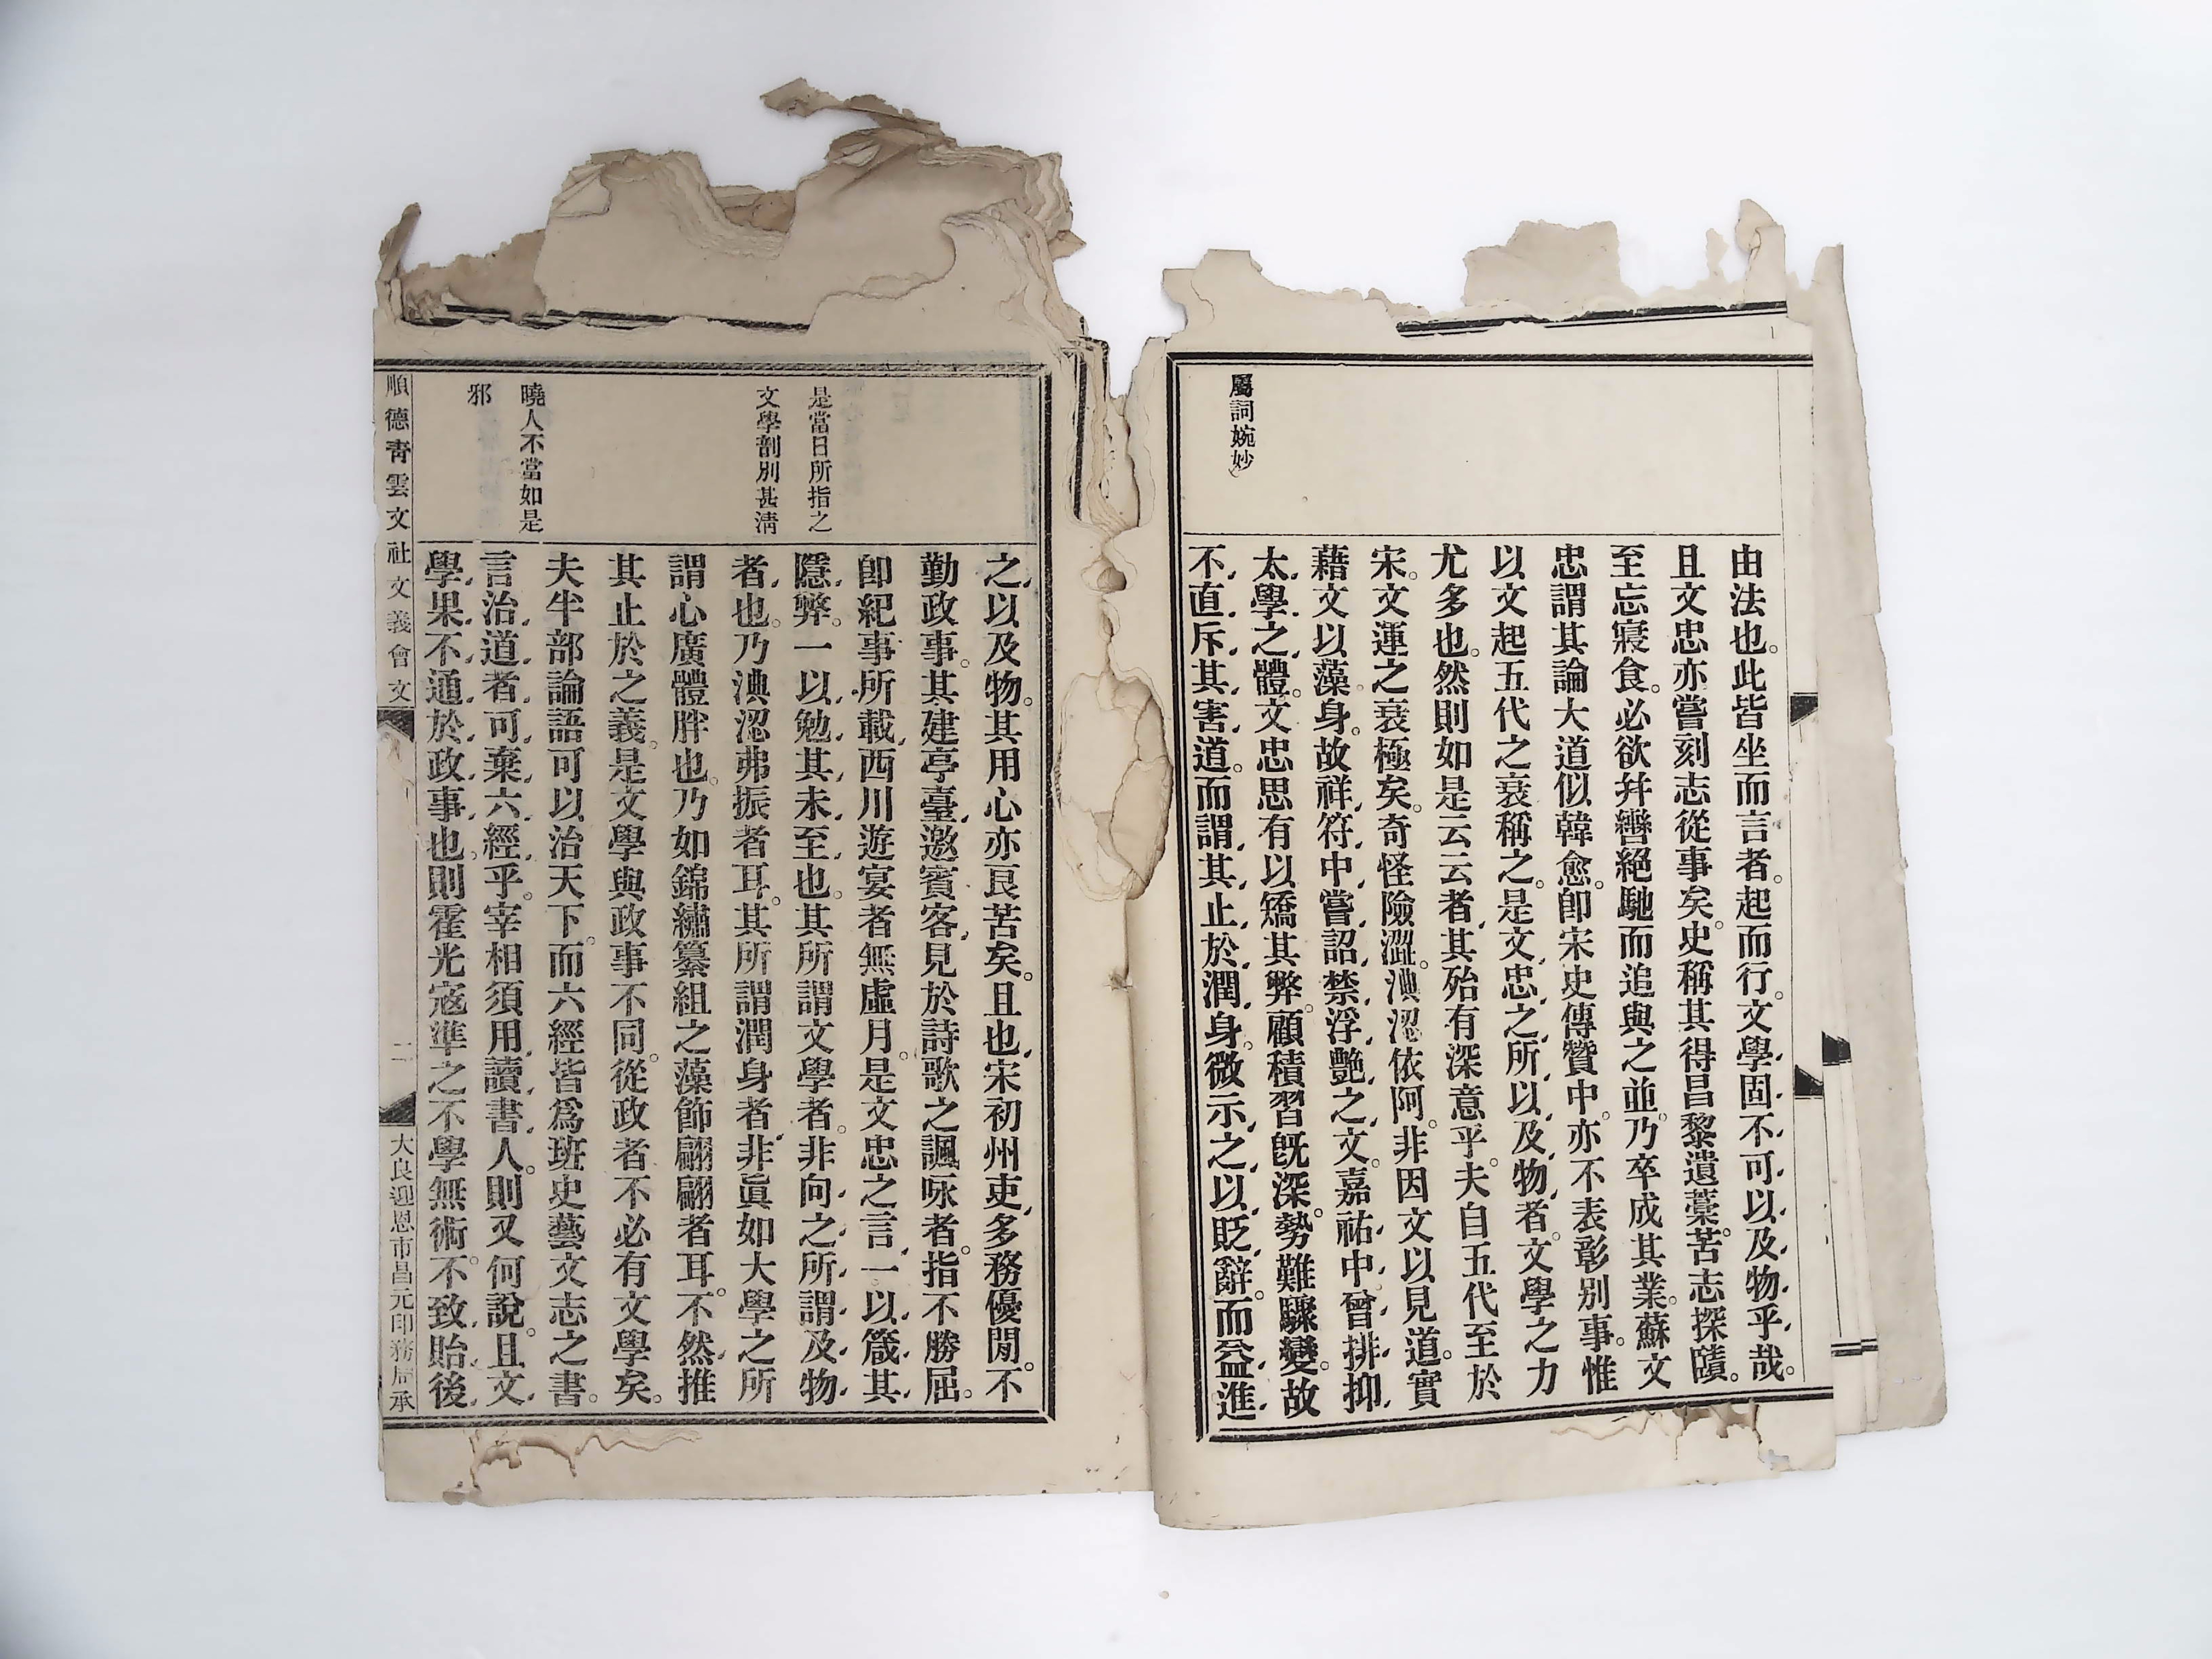 屬詞婉妙
由法也。此皆坐而言者。起而行。文學固不可以及物乎哉。
且文忠亦嘗刻志從事矣。史稱其得昌黎遺藁。苦志探賾。
至忘寢食。必欲幷轡絕馳而追與之並。乃卒成其業。蘇文
忠謂其論大道似韓愈。卽宋史傳贊中。亦不表彰別事。惟
以文起五代之衰稱之。是文忠之所以及物者。文學之力
尤多也。然則如是云云者。其殆有深意乎。夫自五代至於
宋。文運之衰極矣。奇怪險澀。淟涊依阿。非因文以見道。實
藉文以藻身。故祥符中嘗詔禁浮艷之文。嘉祐中曾排抑
太學之體。文忠思有以矯其弊。顧積習旣深。勢難驟變。故
不直斥其害道。而謂其止於潤身。微示之以貶辭。而益進
是當日所指之
文學剖別甚淸
曉人不當如是
邪
之以及物。其用心亦艮苦矣。且也宋初州吏多務優閒。不
勤政事。其建亭臺邀賓客見於詩歌之諷咏者。指不勝屈。
卽紀事所載西川遊宴者無虛月。是文忠之言一以箴其
隱弊。一以勉其未至也。其所謂文學者。非向之所謂及物
者也。乃淟涊弗振者耳。其所謂潤身者。非眞如大學之所
謂心廣體胖也。乃如錦繡纂組之藻飾翩翩者耳。不然推
其止於之義。是文學與政事不同。從政者不必有文學矣。
夫半部論語可以治天下。而六經皆爲班史藝文志之書。
言治道者可棄六經乎。宰相須用讀書人。則又何說。且文
學果不通於政事也。則霍光寇準之不學無術。不致貽後
順德靑雲文社文義會文
二
大良迎恩市昌元印務局承